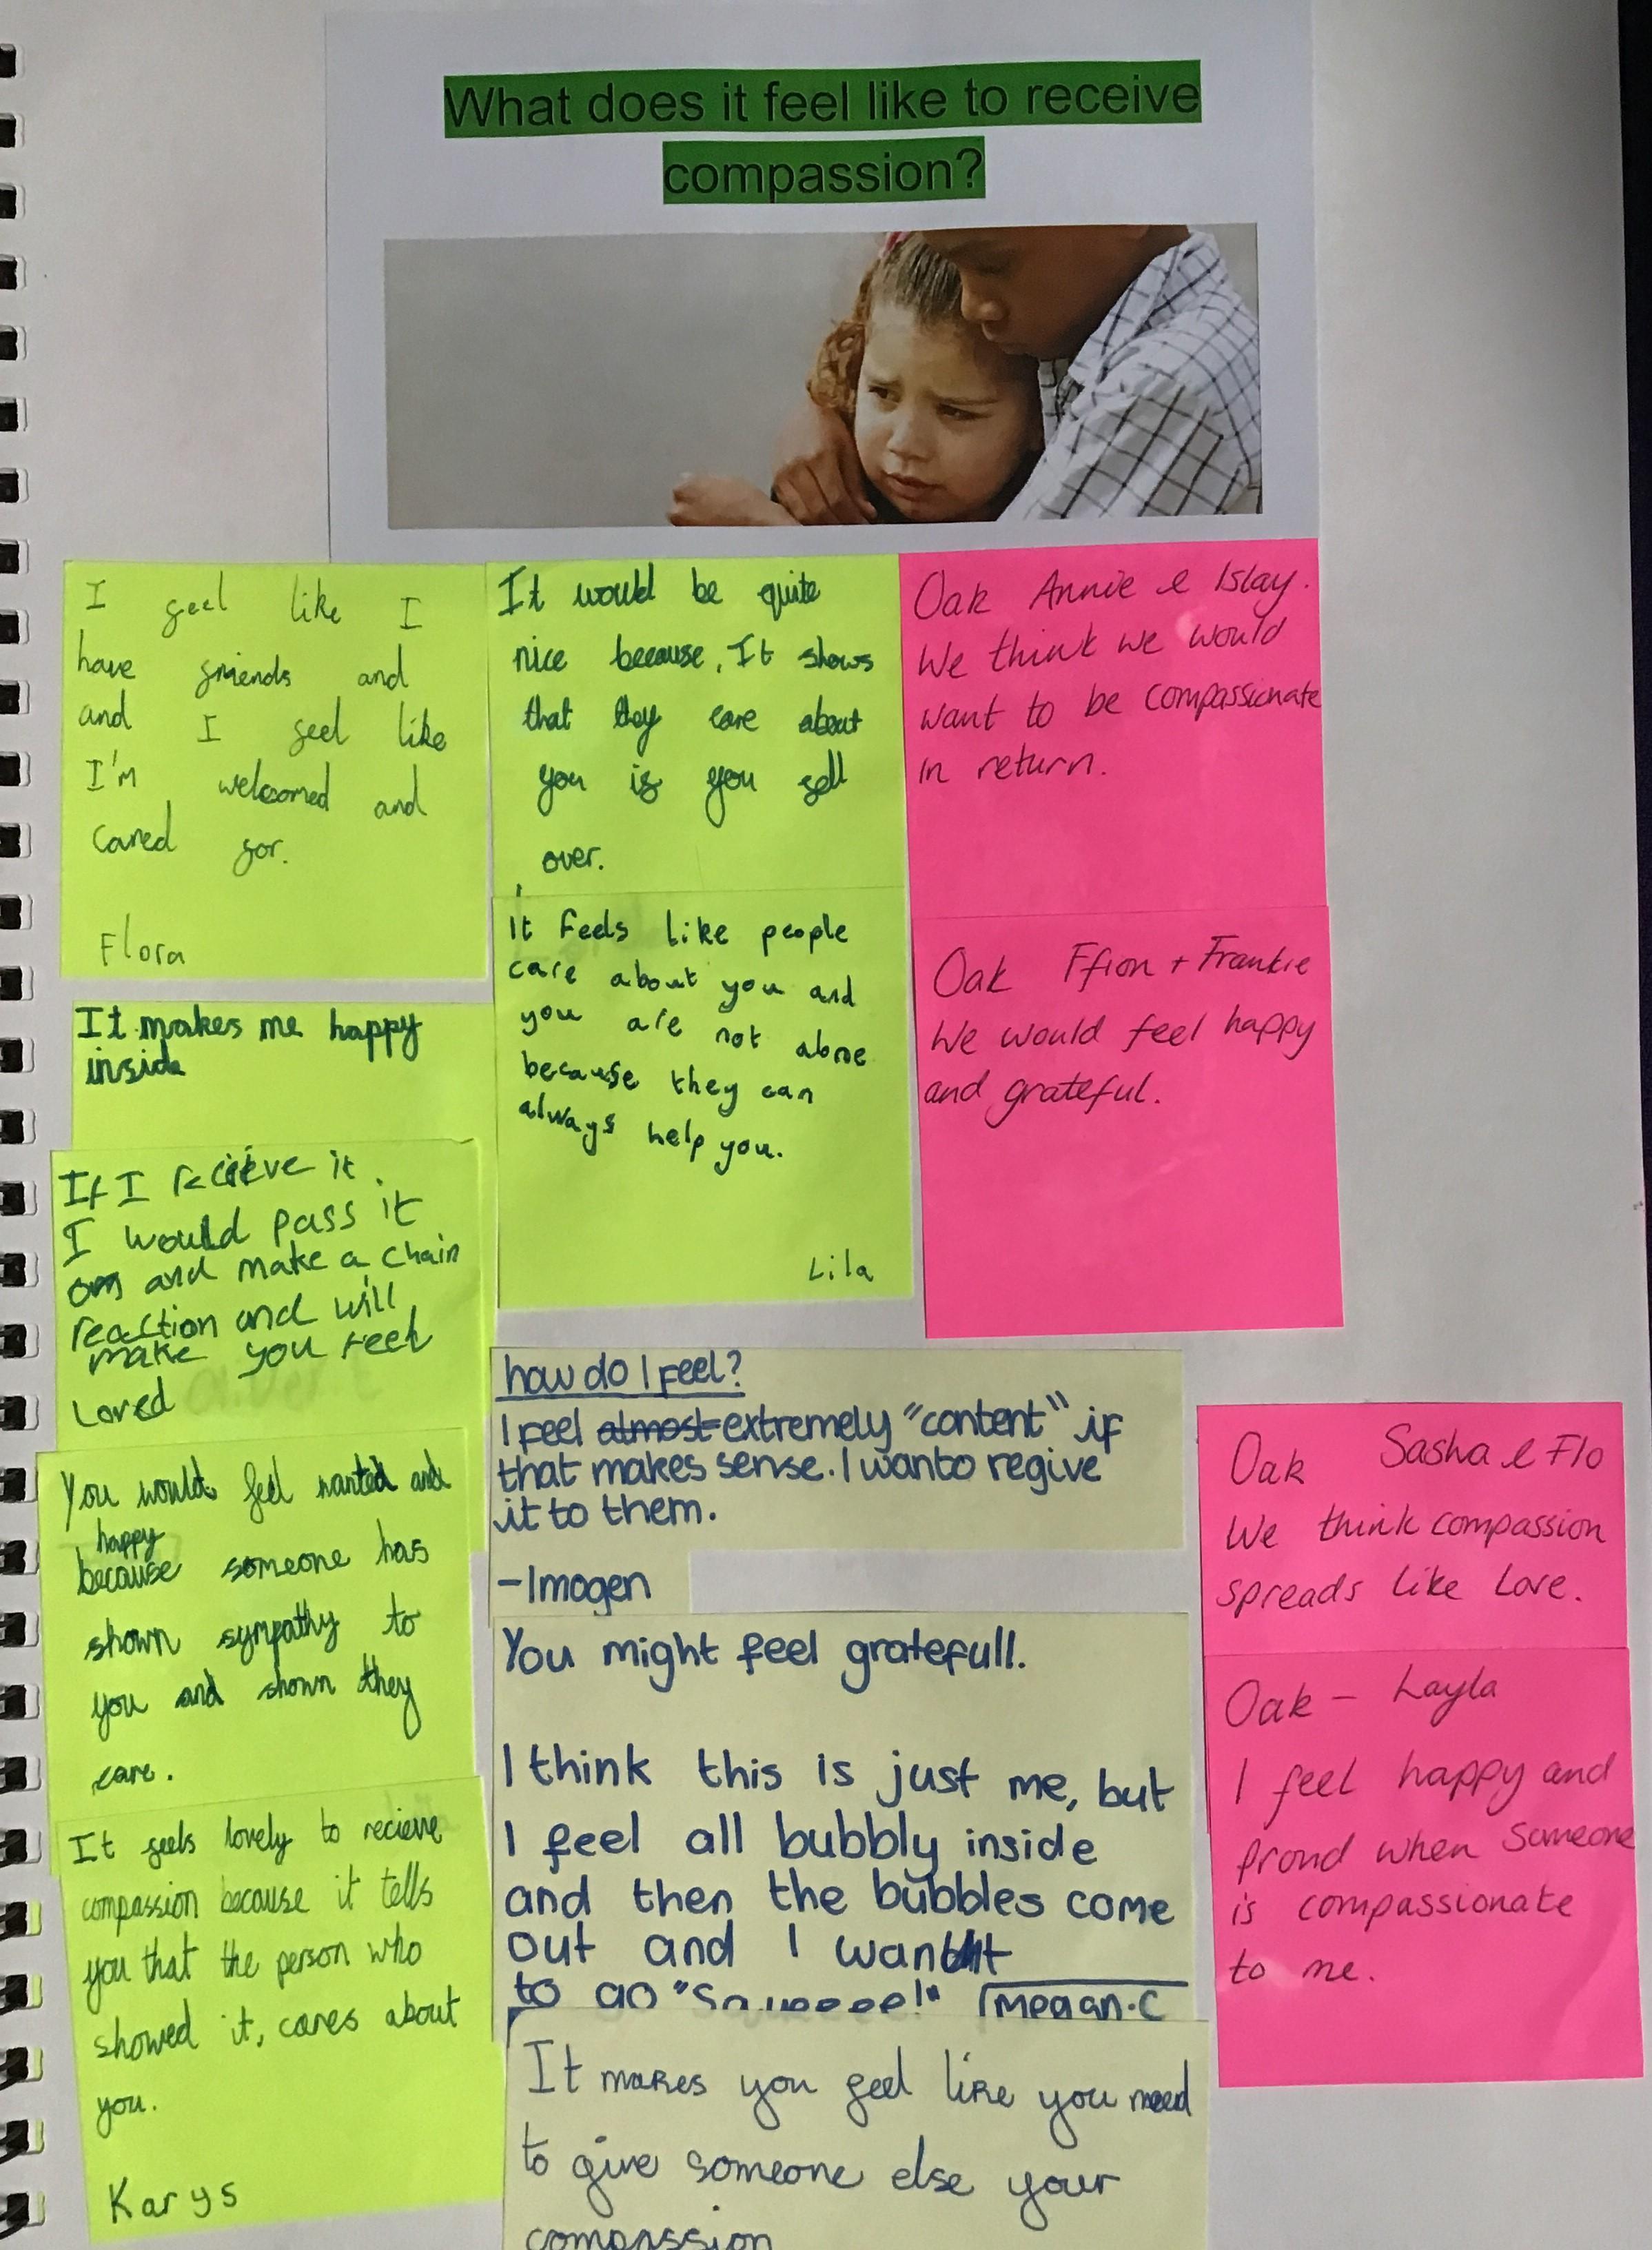 What does it feel like to receive
compassion?
I feel like I
have friends and
and I feel like
I'm welcomed and
cared for.
Flora
It makes me happy
inside
If I recieve it.
I would pass it
on and make a chain
reaction and will
make you feel
Loved
You would feel wanted and
happy
because someone has
shown sympathy to
you and shown they
care.
It feels lovely to recieve
compassion because it tells
you that the person who
showed it, cares about
you.
Karys
It would be quite
nice because, It shows
that they care about
you if you fell
over.
It feels like people
care about you and
you are not alone
because they can
always help you.
Lila
how do I feel?
I feel almost extremely "content" if
that makes sense. I wanto regive
it to them.
-Imogen
You might feel gratefull.
I think this is just me, but
I feel all bubbly inside
and then the bubbles come
out and I want
to go "Squeeee!" Megan.C
It makes you feel like you need
to give someone else your
compassion
Oak Annie & Islay.
We think we would
want to be compassionate
in return.
Oak Ffion + Frankie
We would feel happy
and grateful.
Oak Sasha & Flo
We think compassion
spreads like love.
Oak - Layla
I feel happy and
proud when someone
is compassionate
to me.